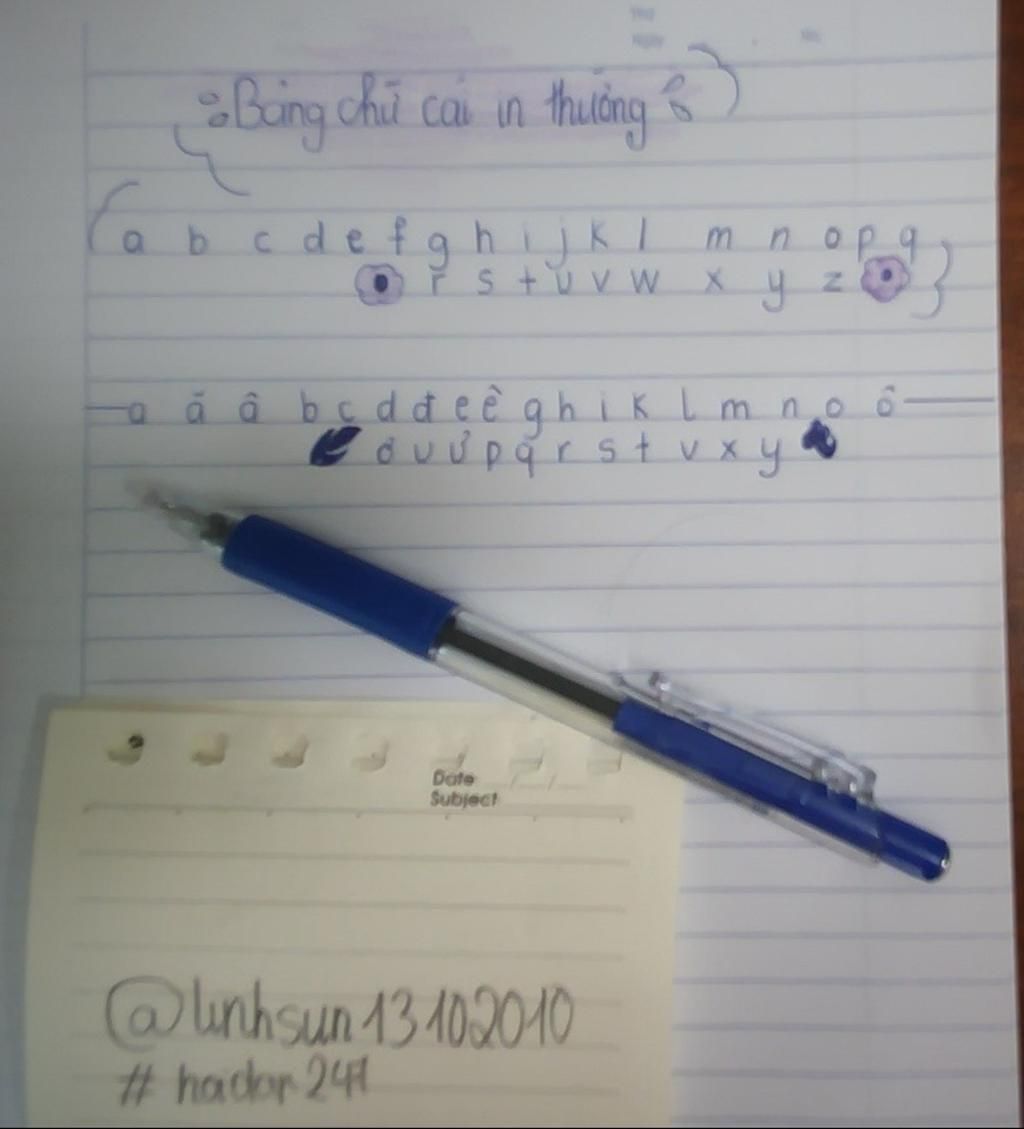 Bảng chữ cái in thường
a b c d e f g h i j k l m n o p q
r s t u v w x y z
a ă â b c d đ e ê g h i k l m n o ô
ơ u ư p q r s t v x y
Date
Subject
@linhsun13102010